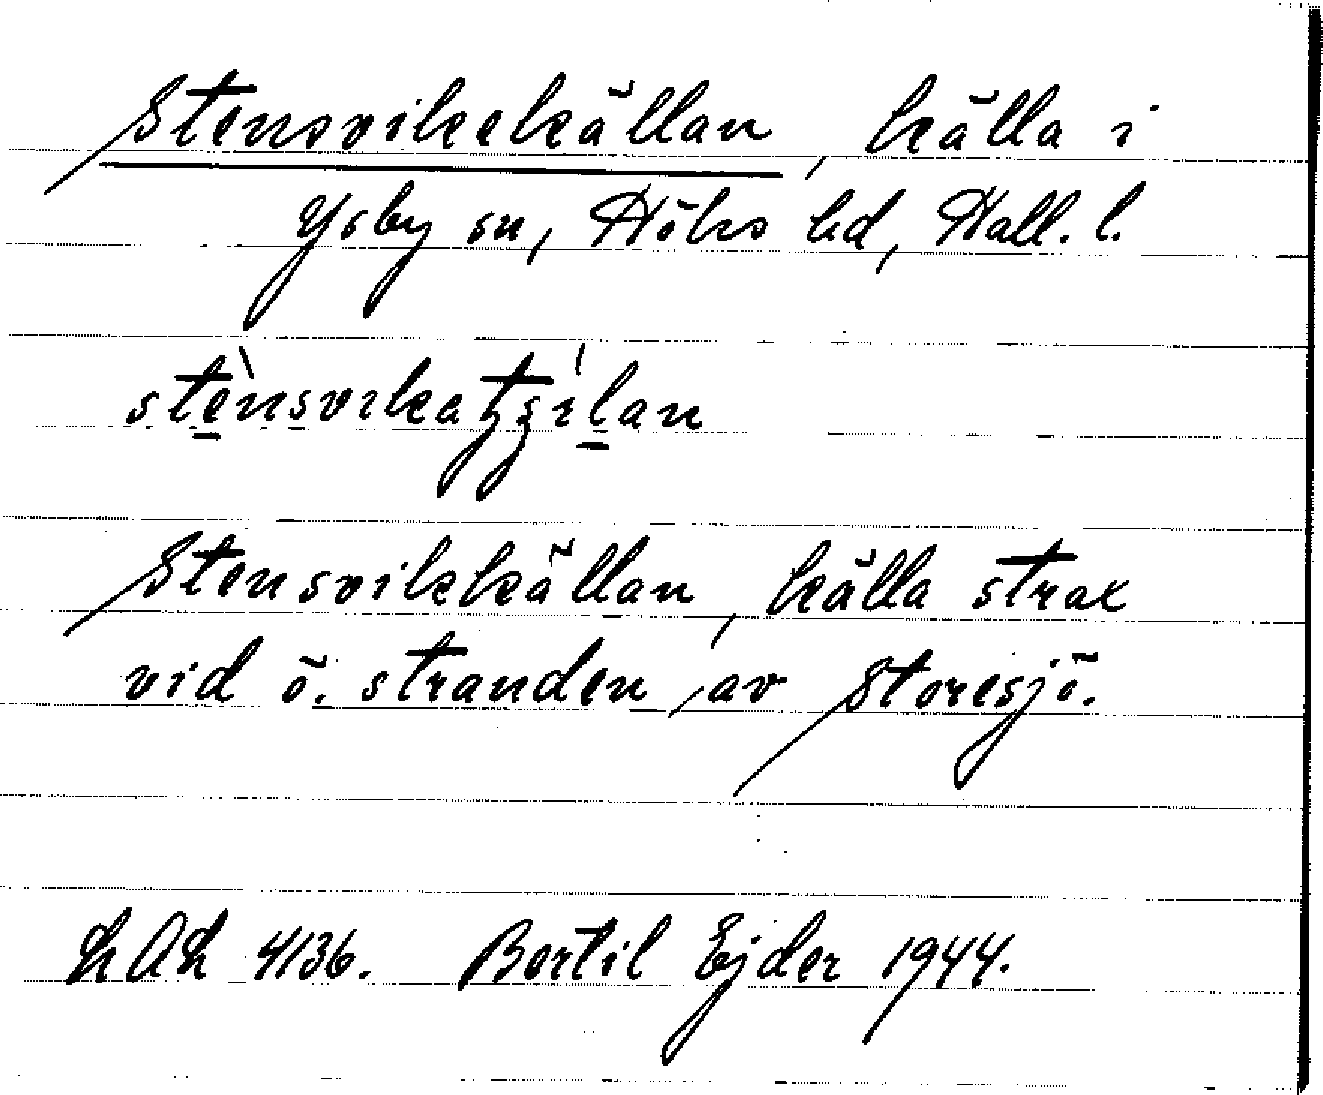 Stensvikekällan, källa i
Ysby sn, Höks hd, Hall. l.
stènsvikatʒílan
Stensvikkällan, källa strax
vid ö. stranden av Storesjö.
LAL 4136. Bertil Ejder 1944.